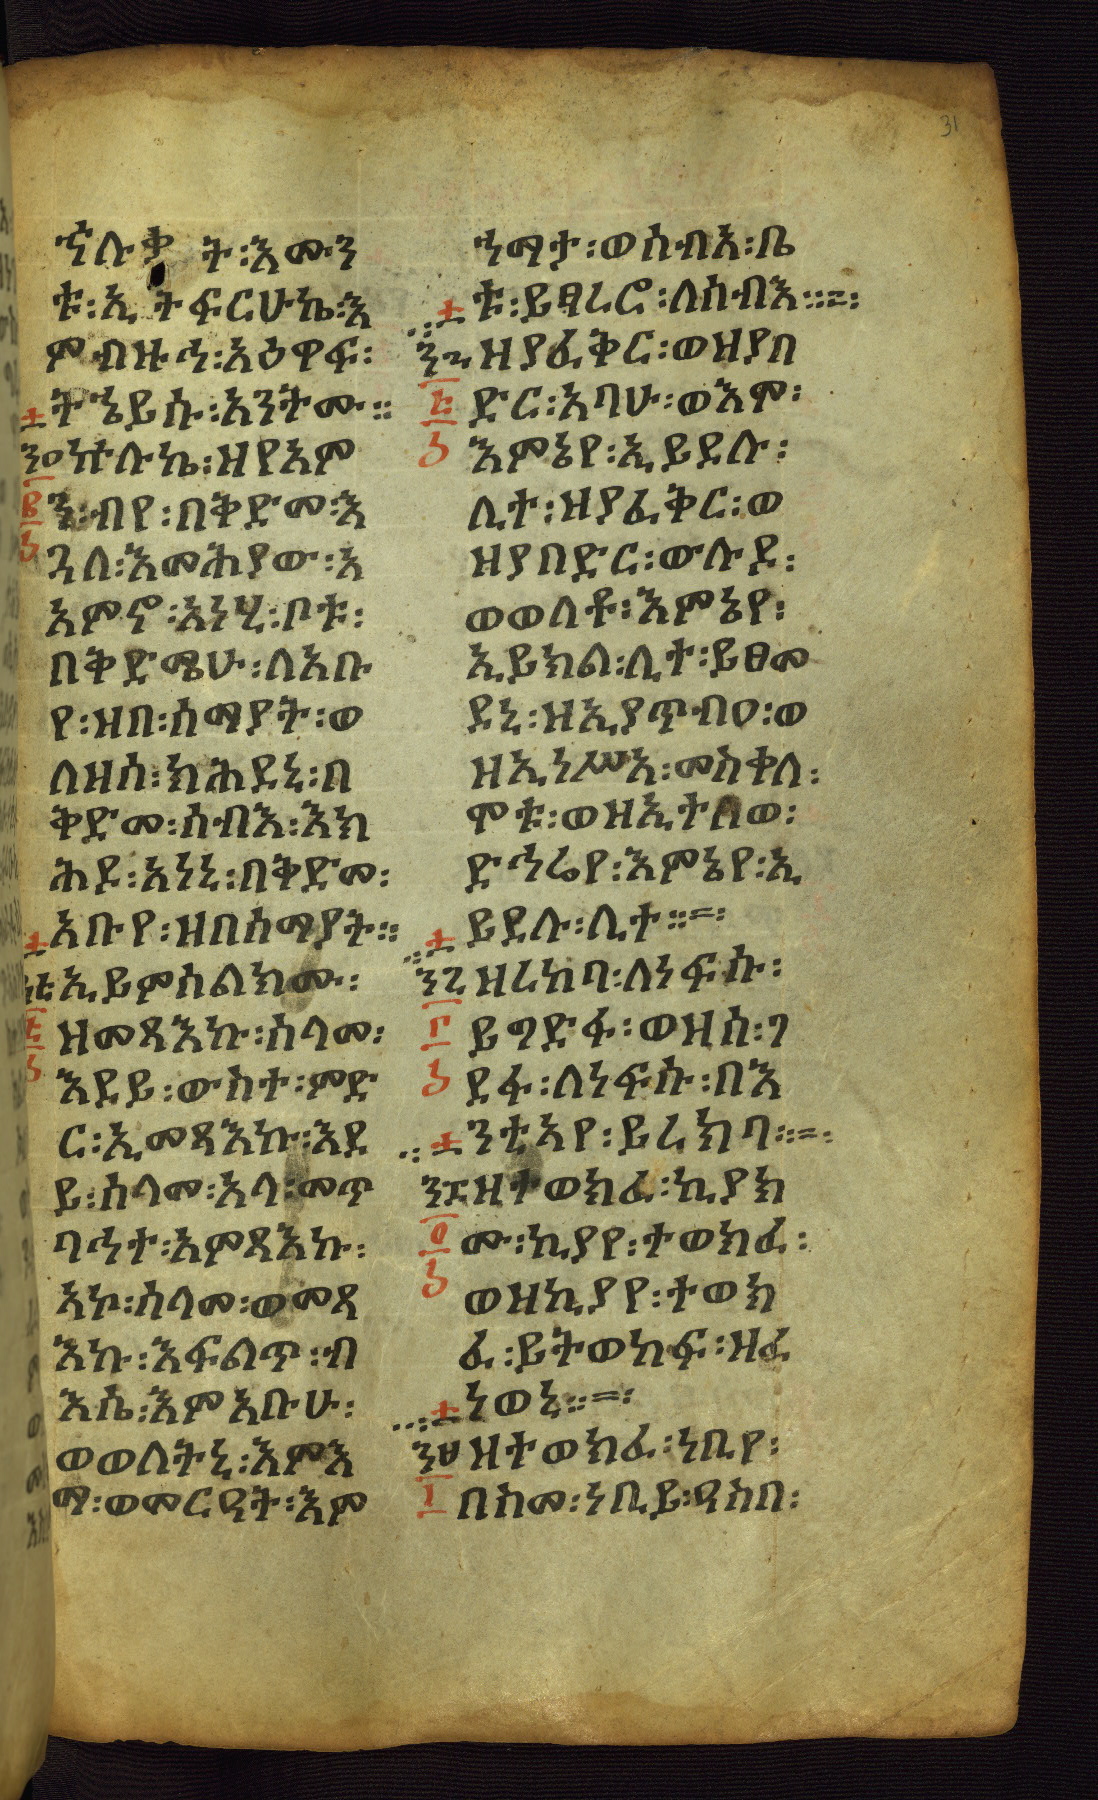 31
ኍሉቃ ት፡እሙን
ቱ፡ኢ ትፍርሁኬ፡እ
ም ብዙኅ፡አዕዋፍ፡
ትኄይሱ፡አንትሙ።
ኵሉኬ፡ዘየአም
ን፡ብየ፡በቅድመ፡እ
ጓለ፡እመሕያው፡አ
አምኖ፡አነሂ፡ቦቱ፡
በቅድሜሁ፡ለአቡ
የ፡ዝበ፡ሰማያት፡ወ
ለዘሰ፡ክሕደኒ፡በ
ቅድመ፡ሰብእ፡እክ
ሕዶ፡አነኒ፡በቅድመ፡
አቡየ፡ዘበሰማያት።
ኢይምሰልክሙ፡
ዘመጻእኩ፡ሰላመ፡
እደይ፡ውስተ፡ምድ
ር፡ኢመጻእኩ፡እደ
ይ፡ሰላመ፡አላ፡መጥ
ባኅተ፡አምጻእኩ፡
አኮ፡ሰላመ፡ወመጻ
እኩ፡እፍልጥ፡ብ
እሴ፡እምአቡሁ፡
ወወለትኒ፡እምእ
ማ፡ወመርዓት፡እም
ኀማታ፡ወሰብአ፡ቤ
ቱ፡ይፃረሮ፡ለሰብእ።=፡
ዝያፈቅር፡ወዝያበ
ድር፡አባሁ፡ወእሞ፡
እምኔየ፡ኢይደሉ፡
ሊተ፡ዝያፈቅር፡ወ
ዝያበድር፡ውሉዶ፡
ወወለቶ፡እምኔየ፡
ኢይክል፡ሊተ፡ይፀመ
ደኒ፡ዝኢያጥብዐ፡ወ
ዘኢነሥአ፡መስቀለ፡
ሞቱ፡ወዝኢተለወ፡
ድኅሬየ፡እምኔየ፡ኢ
ይደሉ፡ሊተ።=፡
ዝረከባ፡ለነፍሱ፡
ይግድፋ፡ወዝሰ፡ገ
ደፋ፡ለነፍሱ፡በእ
ንቲአየ፡ይረክባ።=፡
ዝተወክፈ፡ኪያክ
ሙ፡ኪያየ፡ተወክፈ፡
ወዝኪያየ፡ተወክ
ፈ፡ይትወከፍ፡ዝፈ
ነወኒ።=፡
ዝተወክፈ፡ነቢየ፡
በከመ፡ነቢይ፡ዓስበ፡